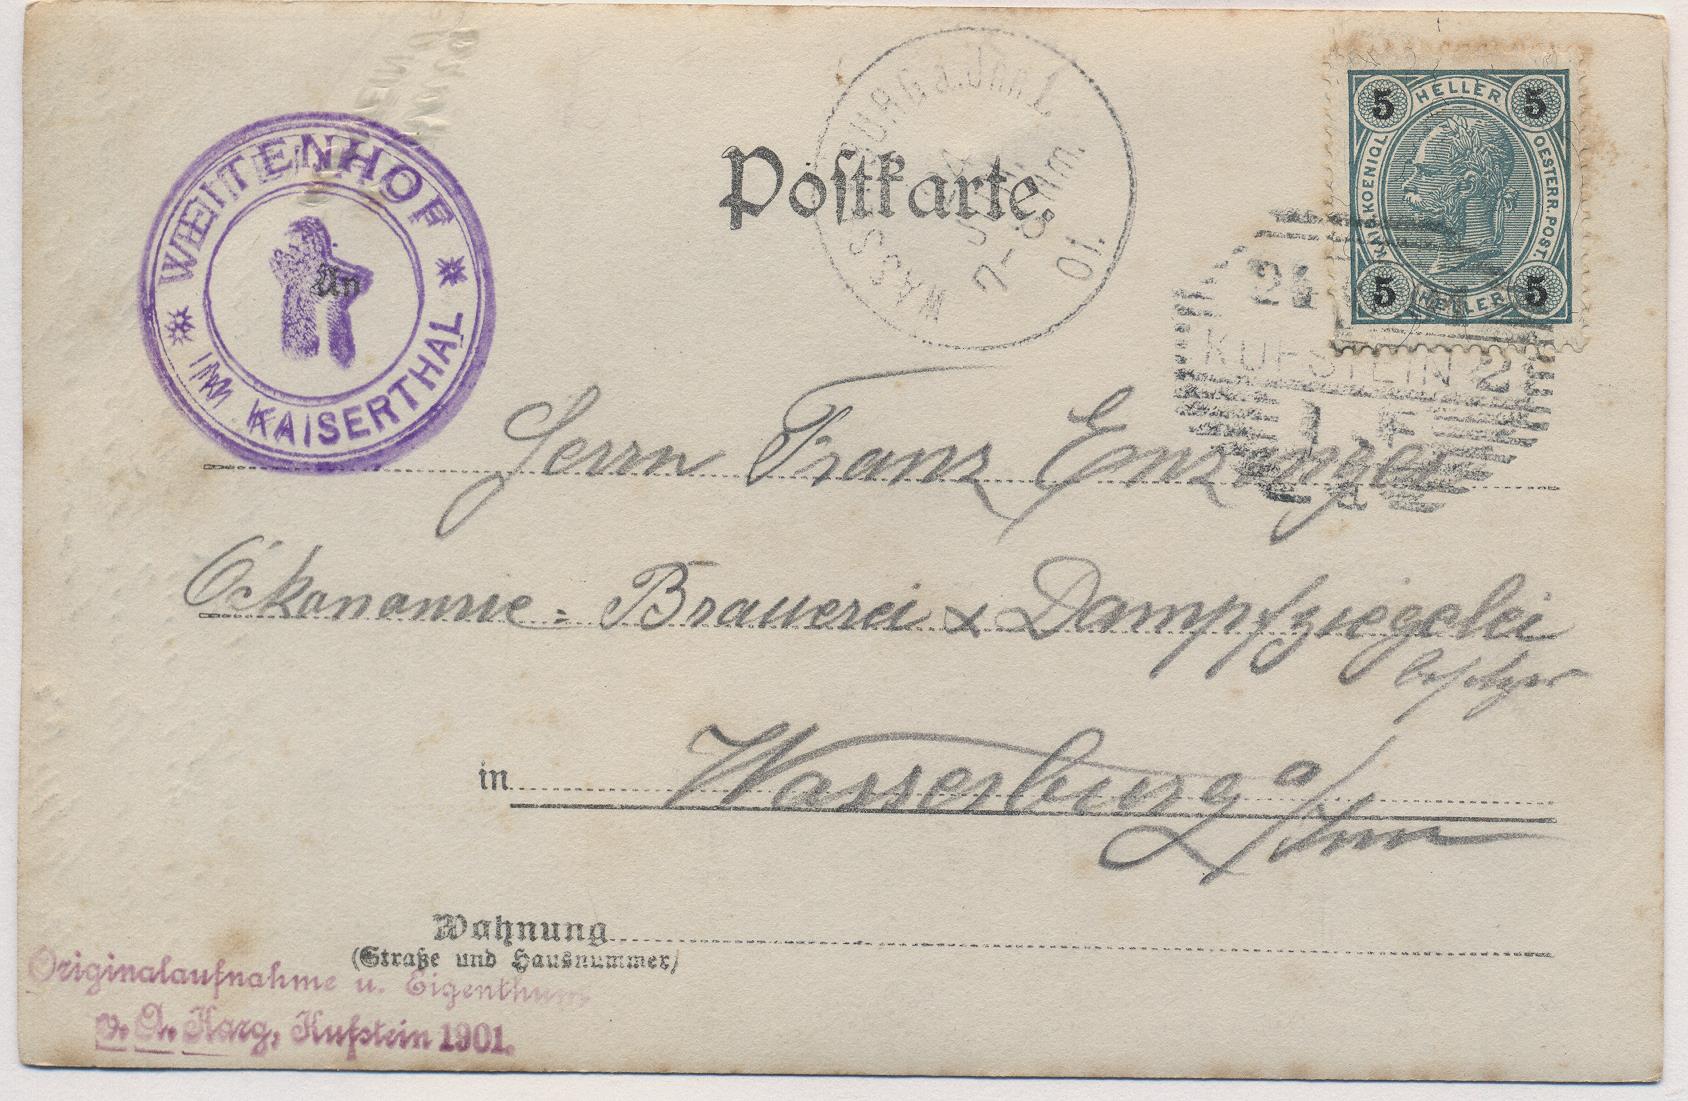 WEITENHOF
IM KAISERTHAL
Postkarte
An
WASSERBURG a. Inn I.
7-8 Nm.
01.
5 HELLER 5
KAIS. KOENIGL. OESTERR. POST.
5 HELLER 5
24
KUFSTEIN 2
1 F
Herrn Franz Enzinger
Ökonomie= Brauerei & Dampfziegelei
besitzer
in Wasserburg a/Inn
Wohnung
(Straße und Hausnummer)
Originalaufnahme u. Eigenthum
v. A. Karg, Kufstein 1901.